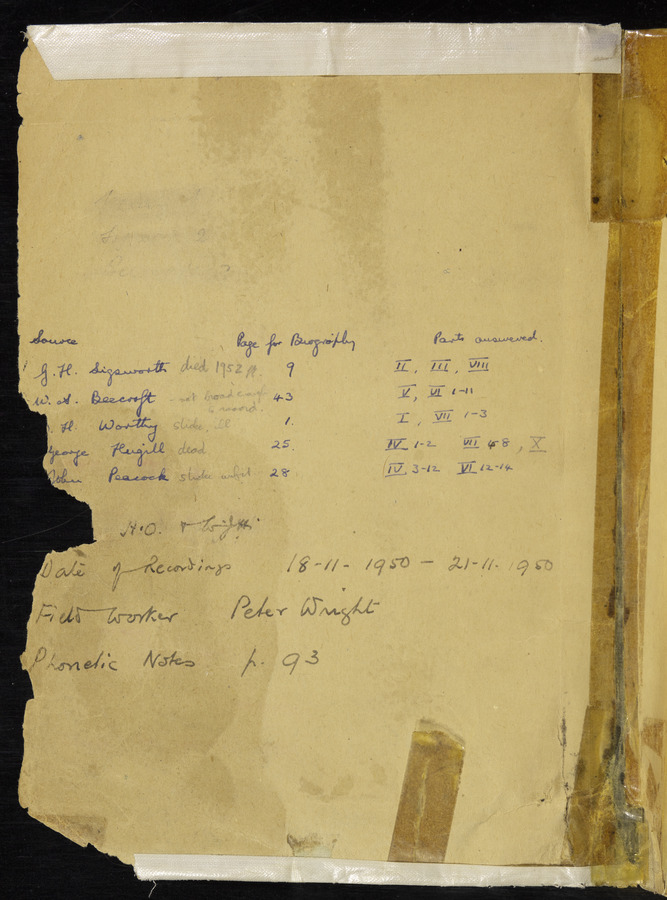 Source Page for Biography Parts answered.
G. H. Sigsworth died 1952 9 II, III, VIII
W. A. Beecroft not broad enough to record. 43 V, VI 1-11
H. Worthy 1. I, VII 1-3
George Hugill dead 25. IV 1-2 VII 4-8, X
John Peacock 28 IV 3-12 VI 12-14
H.O.
Date of Recordings 18-11-1950 - 21-11-1950
Field Worker Peter Wright
Phonetic Notes p. 93